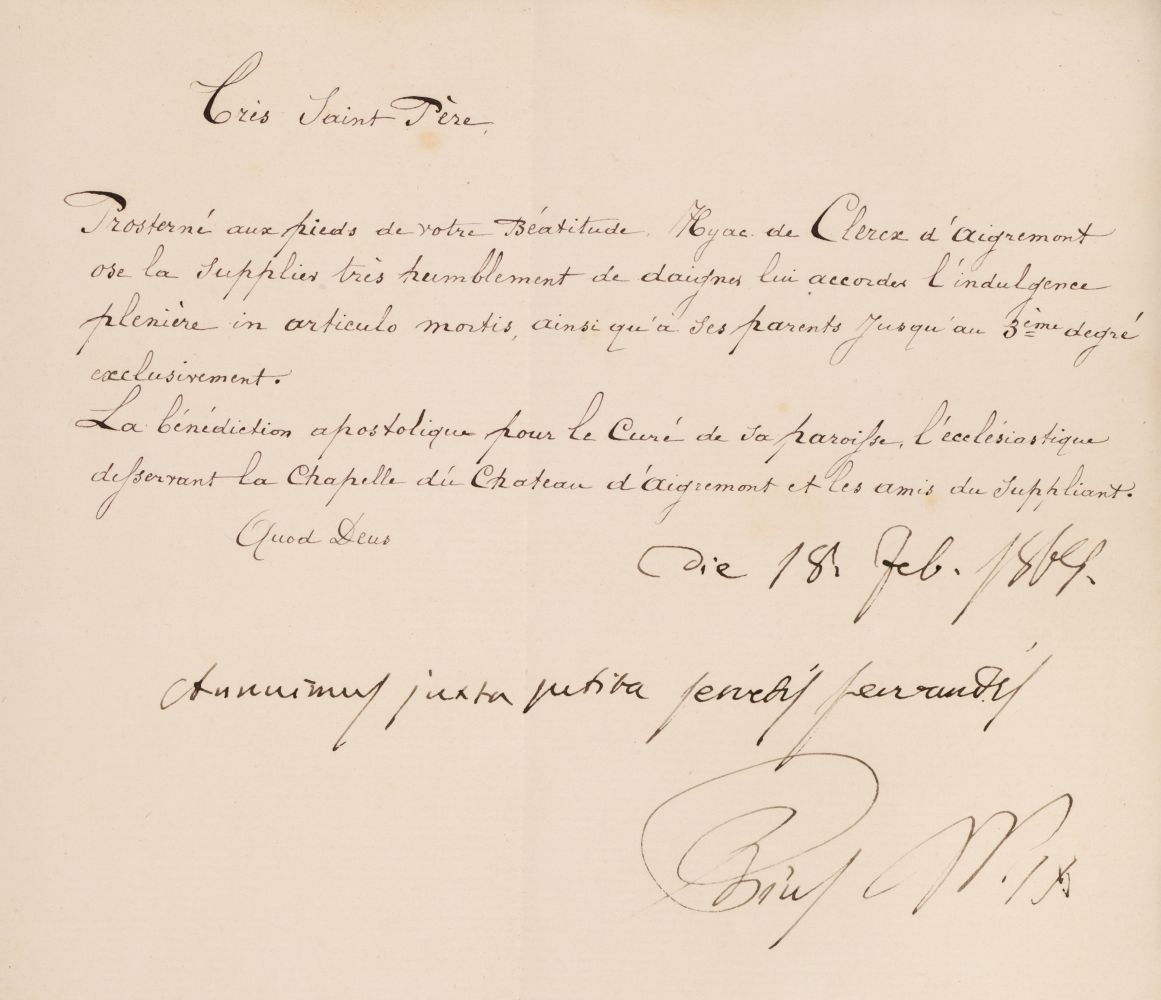 Très Saint Père,
Prosterné aux pieds de votre Béatitude, Hyac. de Clercx d'Aigremont
ose la supplier très humblement de daigner lui accorder l'indulgence
plenière in articulo mortis, ainsi qu'à ses parents jusqu'au 3ème degré
exclusivement.
La bénédiction apostolique pour le Curé de sa paroisse, l'ecclésiastique
desservant la Chapelle du Chateau d'Aigremont et les amis du suppliant.
Quod Deus
Die 18. Feb. 1865.
Annuimus juxta petita servatis servandis
Pius PP. IX